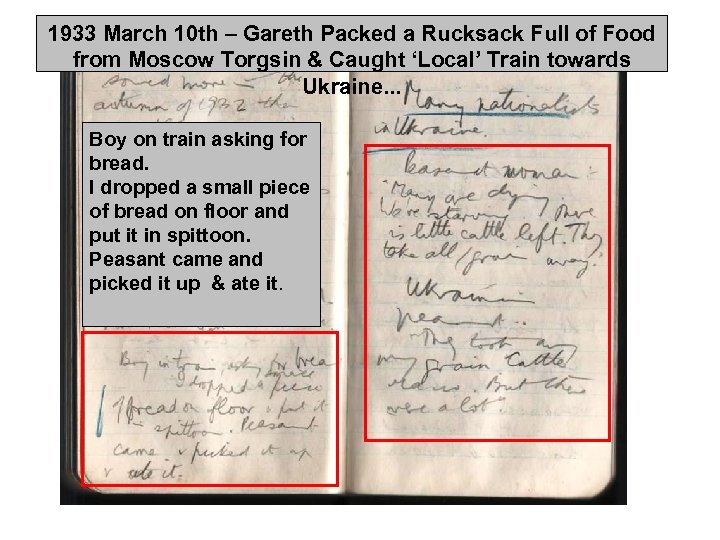 1933 March 10 th – Gareth Packed a Rucksack Full of Food
from Moscow Torgsin & Caught ‘Local’ Train towards
Ukraine...
Boy on train asking for
bread.
I dropped a small piece
of bread on floor and
put it in spittoon.
Peasant came and
picked it up & ate it.
sowed more in the
autumn of 1932 than
Boy in train asking for brea
dropped a piece
of bread on floor & put it
in spittoon. Peasant
came & picked it up
& ate it.
Many nationalists
in Ukraine.
woman:
"Many are dying.
We're starving. There
is little cattle left. They
take all grain away."
Ukrainian
peasant..
"They took any
my grain Cattle
But there
were a lot."